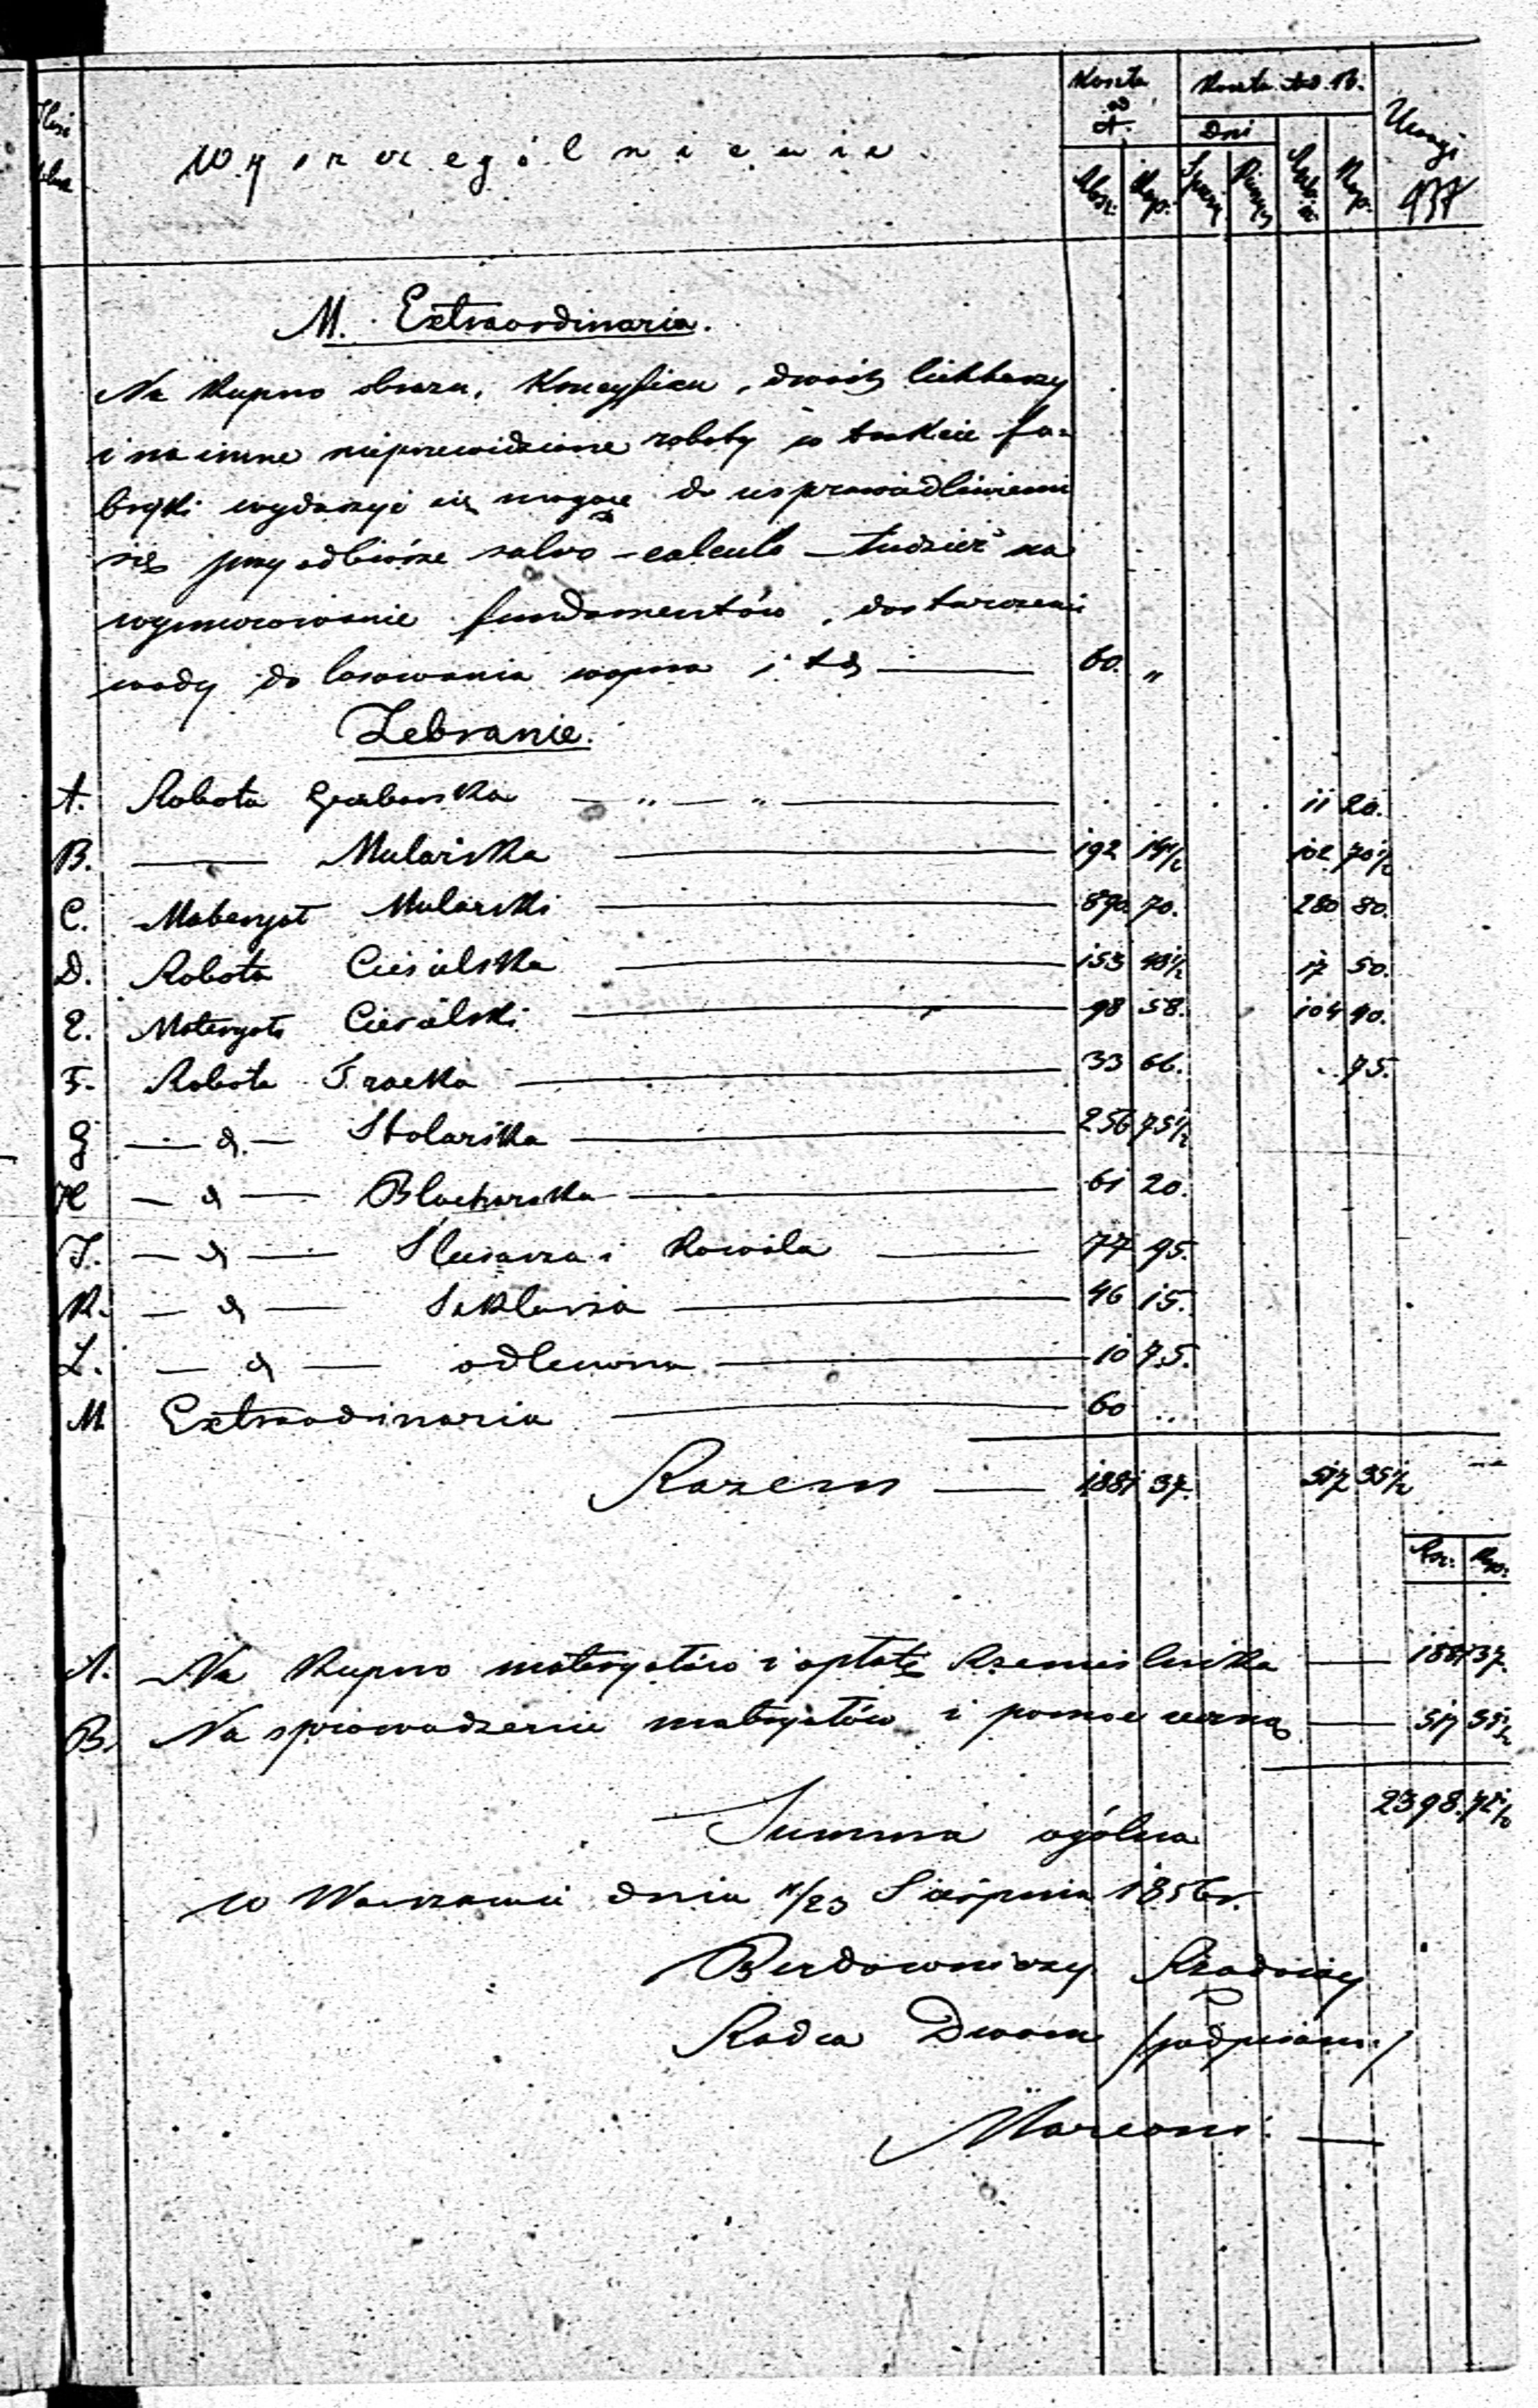 Ilość
Wyszczególnienie.
Koszta ad A.
Koszta ad B.
Uwagi
Dni
Rbsr. Kop. Sprzę. Piesze Rubli sr. Kop. 937
M. Extraordinaria.
Na Kupno obrazu, Krucyfixu, dwóch lichtarzy
i na inne nieprzewidziane roboty w trakcie fa-
bryki wydarzyć się mogące do usprawiedliwienia
się przy odbiórze salvo-calculo – tudzież na
wymiarowanie fundamentów, dostarczenie
wody do lasowania wapna i td — 60. „
Zebranie.
A. Robota Grabarska — „ — „ — 11 20.
B. — Mularska — 192 19 1/2 102 70 1/2
C. Materyał Mularski — 890 70. 280 80.
D. Robota Ciesielska — 153 48 1/2 17 50.
E. Materyał Ciesielski — 98 58. 104 40.
F. Robota Tracka — 33 66. .. 75.
G — d. — Stolarska — 256 75 1/2
H — d — Blacharska — 61 20.
J. — d — Ślusarza i Kowala — 77 95.
K. — d — Szklarza — 46 15.
L. — d — odlewna — 10 75.
M Extraordinaria — 60 ..
Razem — 1881 37. 517 35 1/2
Rsr. Kop.
A. Na Kupno materyałów i opłatę Rzemieślnika — 1881 37.
B. Na sprowadzenie materyałów i pomoc ręczną — 517 35 1/2
Summa ogólna 2398. 72 1/2
w Warszawie dnia 11/23 Sierpnia 1856 r.
Budowniczy Rządowy
Radca Dworu /podpisano/
Marconi. —